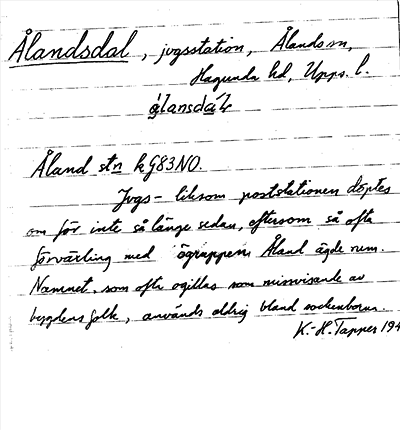 Ålandsdal, jvgsstation, Ålands sn,
Hagunda hd, Upps. l.
Åland stn kG83NO.
Jvgs- liksom poststationen döptes
om för inte så länge sedan, eftersom så ofta
förväxling med ögruppen Åland ägde rum.
Namnet, som ofta ogillas som missvisande av
bygdens folk, används aldrig bland sockenborna.
K.-H. Tapper 194